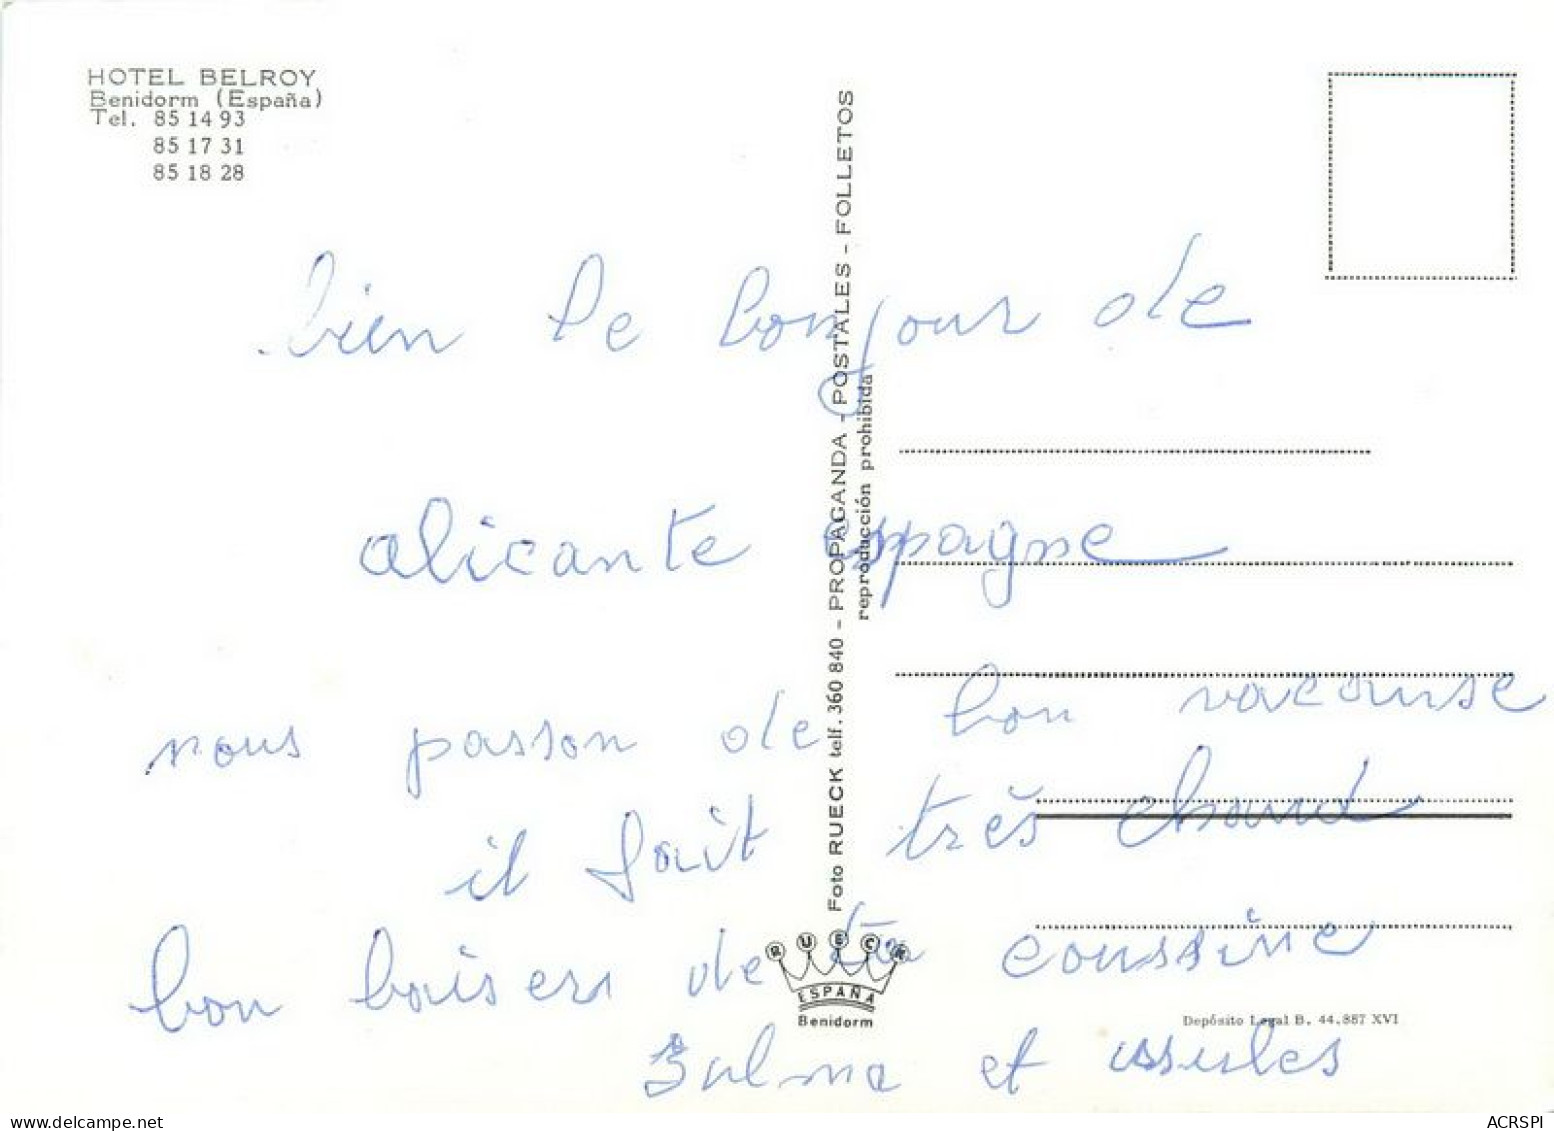 HOTEL BELROY
Benidorm (España)
Tel. 85 14 93
85 17 31
85 18 28
bien le bonjour de
alicante espagne
nous passon de bon vacanse
il fait très chaud
bon baisers de ta coussine
Zulma et
Foto RUECK telf. 360 840 - PROPAGANDA - POSTALES - FOLLETOS
reproducción prohibida
RUECK
ESPAÑA
Benidorm
Depósito Legal B. 44.887 XVI
ACRSPI